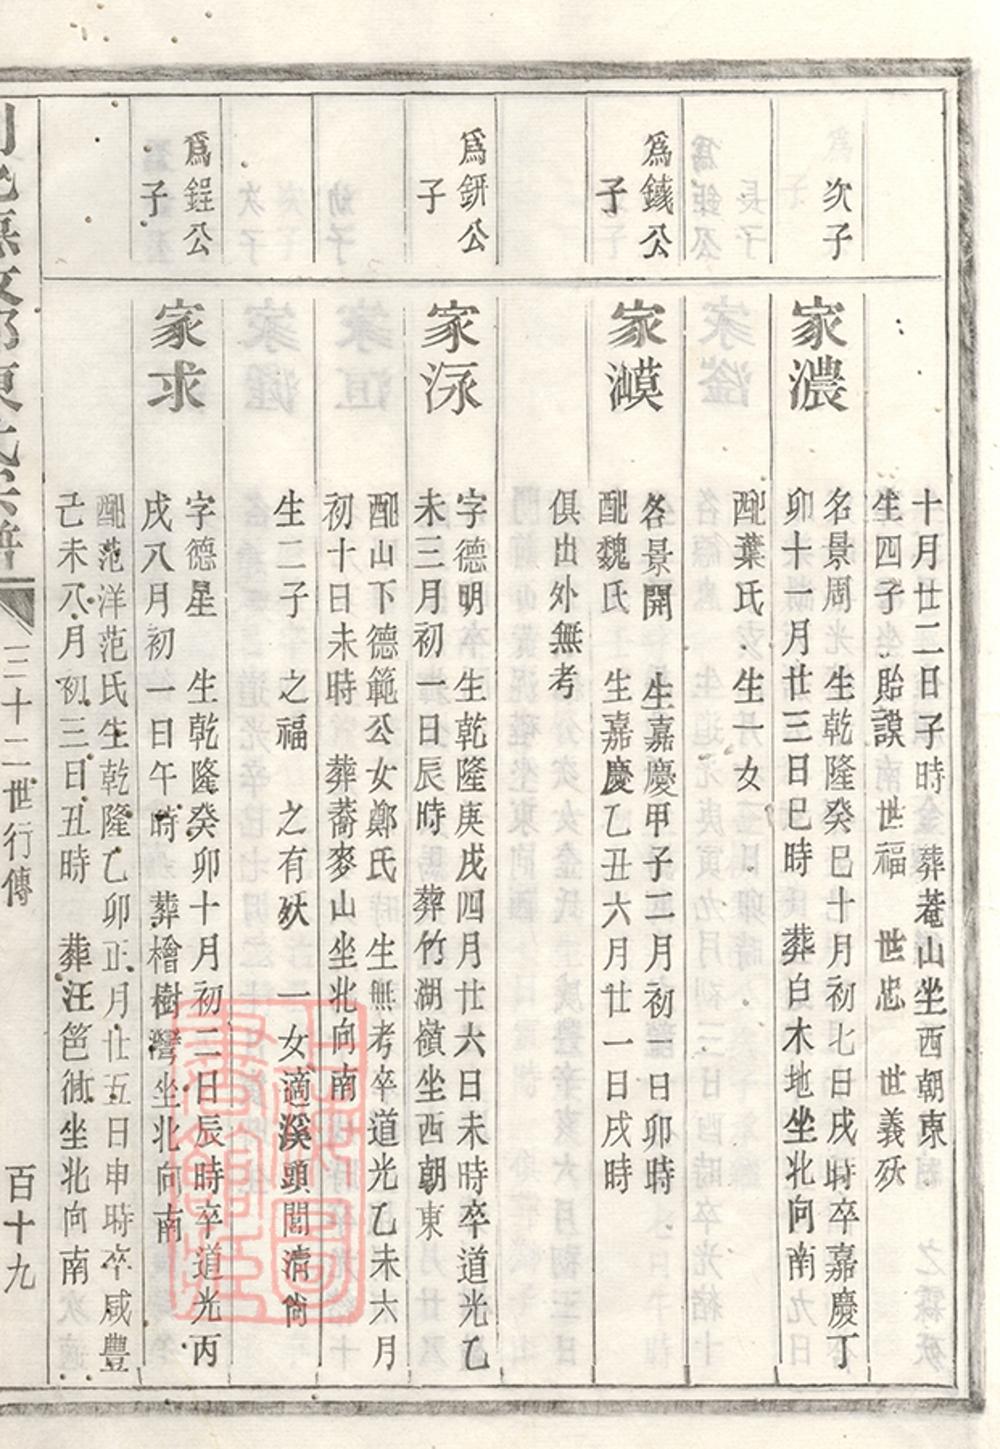 十月廿二日子時 葬菴山坐西朝東
生四子 貽謨 世福 世忠 世義殀
次子
家濃
名景周 生乾隆癸巳十月初七日戌時卒嘉慶丁
卯十一月廿三日巳時 葬白木地坐北向南
配葉氏 生一女
為鐵公
子
家漠
名景開 生嘉慶甲子二月初一日卯時
配魏氏 生嘉慶乙丑六月廿一日戌時
俱出外無考
為鈃公
子
家泳
字德明 生乾隆庚戌四月廿六日未時卒道光乙
未三月初一日辰時 葬竹湖嶺坐西朝東
配山下德範公女鄭氏 生無考卒道光乙未六月
初十日未時 葬蕎麥山坐北向南
生二子 之福 之有殀 一女適溪頭閭清尚
為鋥公
子
家求
字德星 生乾隆癸卯十月初二日辰時卒道光丙
戌八月初一日午時 葬檜樹灣坐北向南
配范洋范氏生乾隆乙卯正月廿五日申時卒咸豐
己未八月初三日丑時 葬汪笆 坐北向南
三十二世行傳
百十九